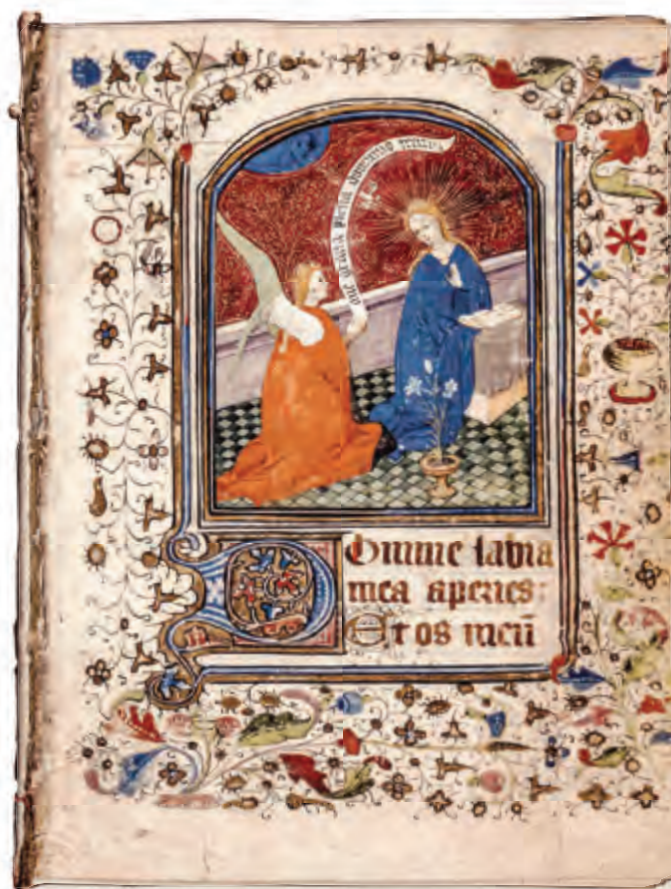 aue gracia plena dominus
Domine labia
mea aperies:
Et os meū